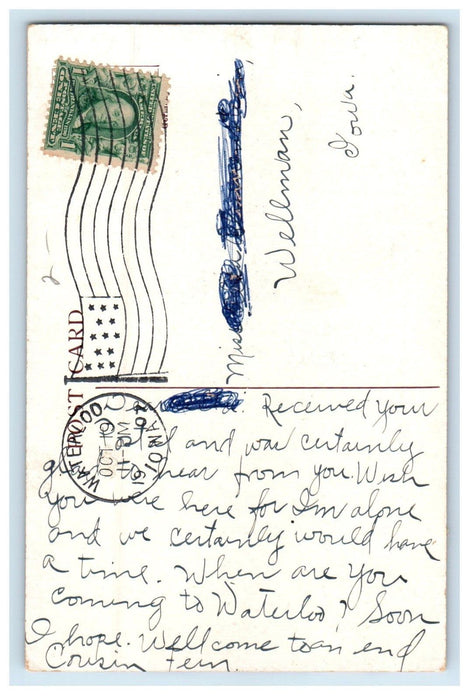 POST CARD
WATERLOO
OCT 19
11 30 AM
IOWA
Miss
Wellman,
Iowa.
Received your
card and was certainly
glad to hear from you. Wish
you were here for I'm alone
and we certainly would have
a time. When are you
coming to Waterloo? Soon
I hope. Wellcome to an end
Cousin Fern.